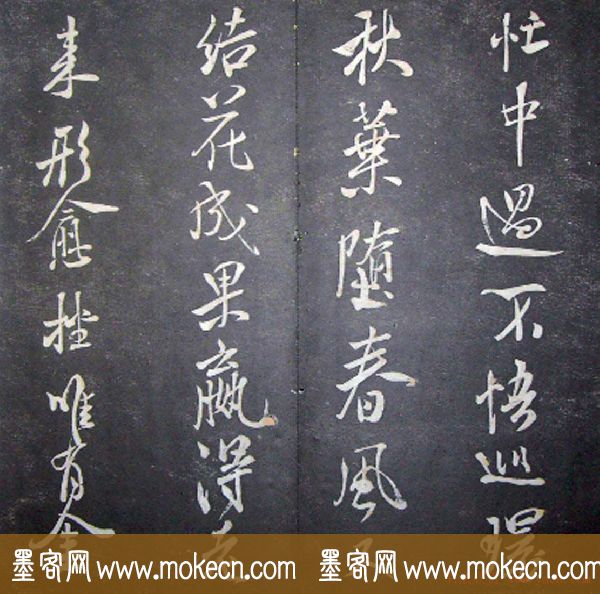 忙中過不悟巡環
秋葉墮春風又
結花成果贏得
来形愈唯有金
墨客网 www.mokecn.com 墨客网 www.mokecn.com